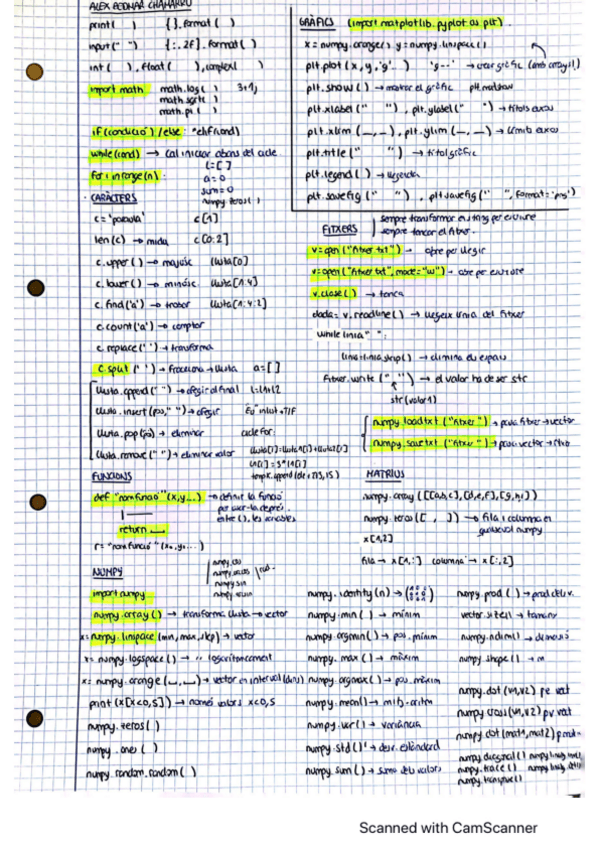 ALEX
print( ) { }.format( )
input(" ") {:.2f}.format( )
int( ), float( ), complex( )
import math math.log( ) 3+1j
math.sqrt( )
math.pi ( )
if(condició)/else: *elif(cond)
while(cond) → cal iniciar abans del cicle
for i in range(n): l=[ ]
a=0
sum=0
numpy.zeros( )
CARÀCTERS
c='paraula' c[1]
len(c) → mida c[0:2]
c.upper( ) → majúsc llista[0]
c.lower( ) → minúsc. llista[1:4]
c.find('a') → trobar llista[1:4:2]
c.count('a') → comptar
c.replace(' ') → transforma
c.split(' ') → fracciona → llista a=[ ]
llista.append(" ") → afegir al final l=l1+l2
llista.insert(pos," ") → afegir
llista.pop(pos) → eliminar cicle for:
llista.remove(" ") → eliminar valor llista[i]=llista1[i]+llista2[i]
FUNCIONS
def "nomfunció"(x,y...) → definir la funció
per usar-la després
entre( ), les variables
return
r="nomfunció"(x,y,...)
NUMPY
import numpy
numpy.array( ) → transforma llista → vector
x=numpy.linspace(min,max,step) → vector
x=numpy.logspace( ) → " logarítmicament
x=numpy.arange(_,_,_) → vector en interval (dins)
print(x[x<0,5]) → només valors x<0,5
numpy.zeros( )
numpy.ones( )
numpy.random.random( )
GRÀFICS (import matplotlib.pyplot as plt)
x=numpy.arange( ) y=numpy.linspace( )
plt.plot(x,y,'g'..) 'g--' → crear gràfic (amb arrays!!)
plt.show( ) → mostrar el gràfic
plt.xlabel(" "), plt.ylabel(" ") → títols eixos
plt.xlim(_,_), plt.ylim(_,_) → límits eixos
plt.title(" ") → títol gràfic
plt.legend( ) → llegenda
plt.savefig(" "), plt.savefig(" ", format='png')
FITXERS sempre transformar en string per escriure
sempre tancar el fitxer.
v=open("fitxer.txt") → obre per llegir
v=open("fitxer.txt", mode="w") → obre per escriure
v.close( ) → tanca
dada=v.readline( ) → llegeix línia del fitxer
while linia " ":
linia=linia.strip( ) → elimina els espais
fitxer.write(" ") → el valor ha de ser str
str(valor1)
numpy.loadtxt("fitxer") → passa fitxer → vector
numpy.savetxt("fitxer") → passa vector → fitxer
MATRIUS
numpy.array([[a,b,c],[d,e,f],[g,h,i]])
numpy.zeros([ , ]) → fila i columna en
qualsevol numpy
x[1,2]
fila → x[1,:] columna → x[:,2]
numpy.identity(n)
numpy.min( ) → mínim
numpy.argmin( ) → pos. mínim
numpy.max( ) → màxim
numpy.argmax( ) → pos. màxim
numpy.mean( ) → mitj. aritm
numpy.var( ) → variància
numpy.std( ) → desv. estàndard
numpy.sum( ) → suma dels valors
numpy.prod( ) → prod. dels v.
vector.size( ) → tamany
numpy.ndim( ) → dimensió
numpy.shape( ) → m
numpy.dot(v1,v2) pe vect
numpy.cross(v1,v2) pv vect
numpy.dot(mat1,mat2) p.mat
numpy.diagonal( )
numpy.trace( )
numpy.transpose( )
Scanned with CamScanner